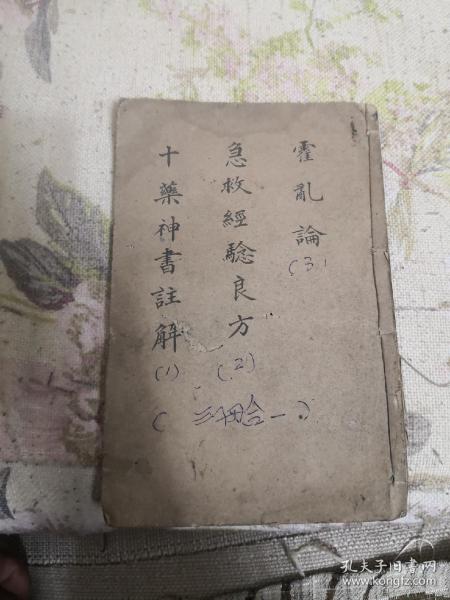 霍乱論
(3)
急救經驗良方
(2)
十藥神書註解
(1)
(三册合一)
孔夫子旧书网
www.kongfz.com